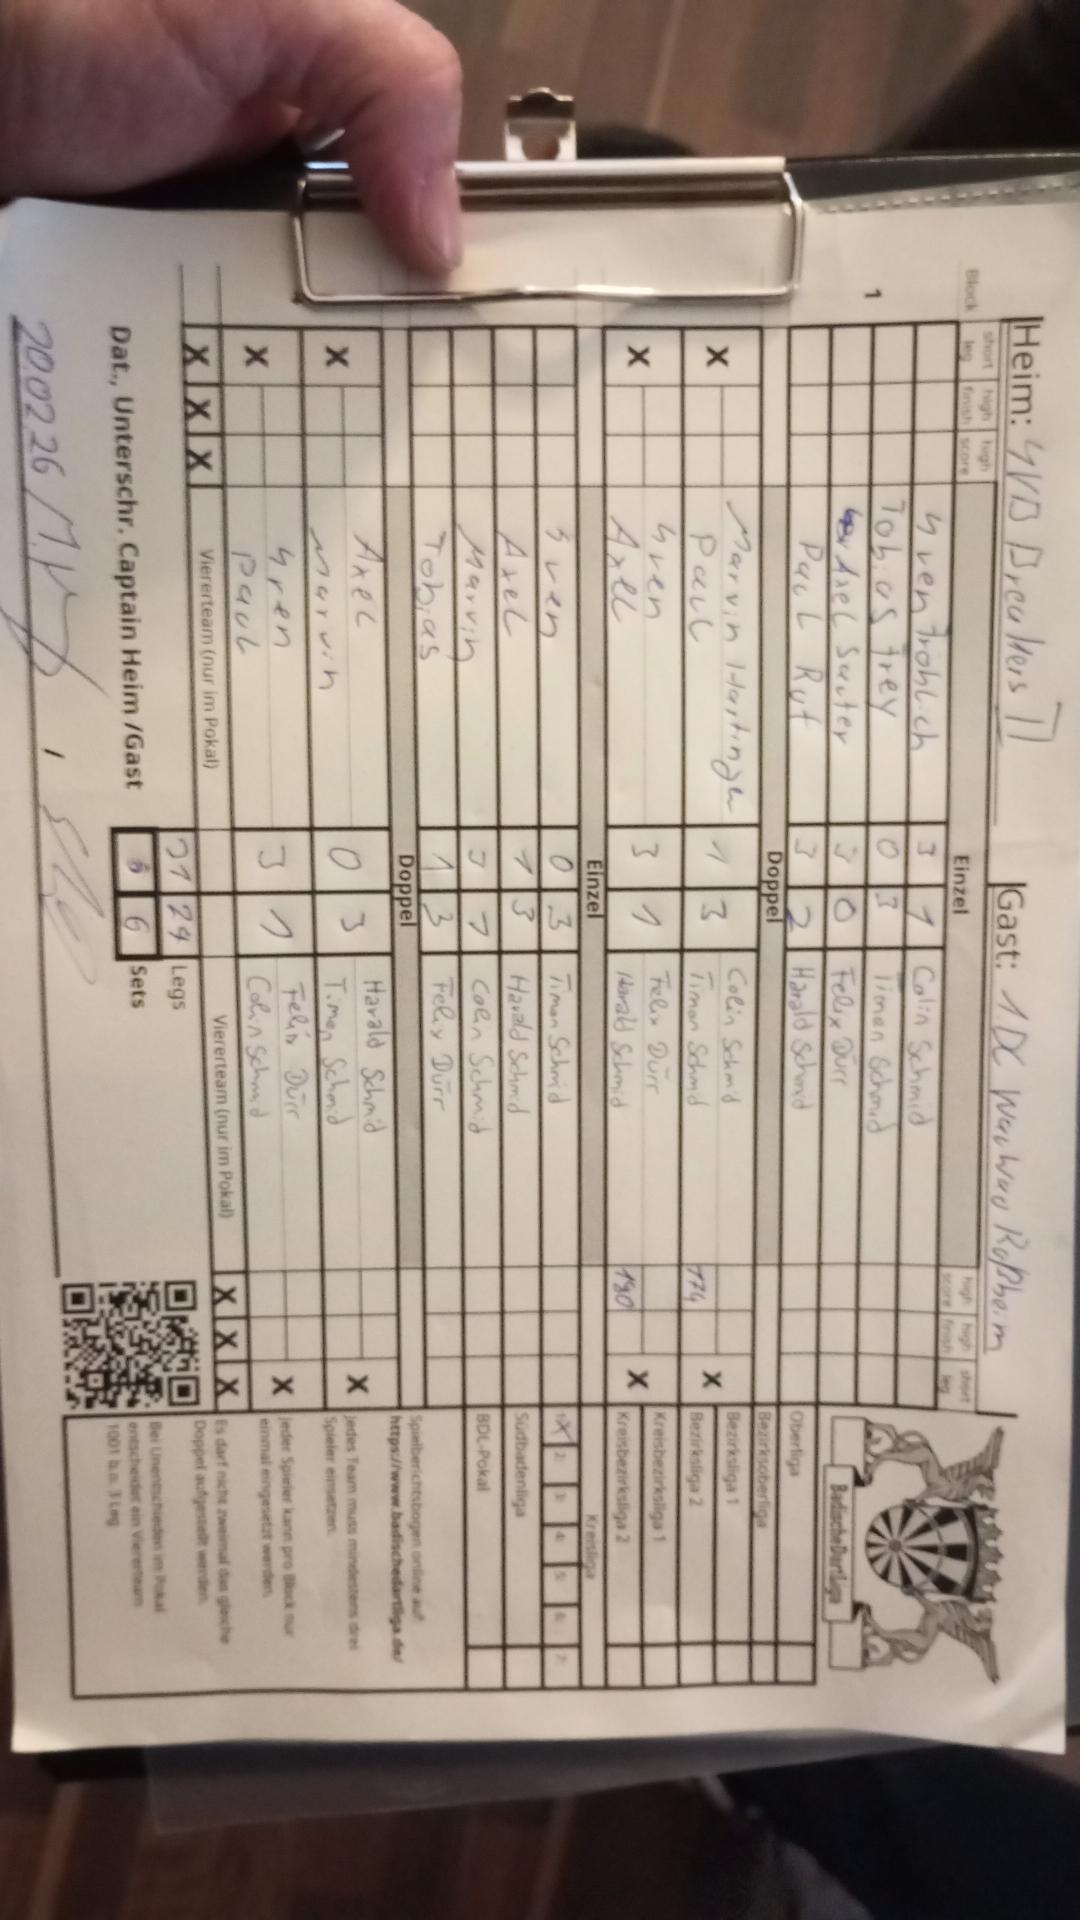 Heim: SVB Breakers II
Gast: 1.DC Wau Wau Roßheim
Block short leg high finish high score
Einzel
high score high finish short leg
1
Sven Fröhlich 3 1 Colin Schmid
Tobias Frey 0 3 Timon Schmid
Axel Sauter 3 0 Felix Dürr
Paul Ruf 3 2 Harald Schmid
Doppel
Marvin Hartinger Colin Schmid
X Paul 1 3 Timon Schmid 174 X
Sven Felix Dürr
X Axel 3 1 Harald Schmid 180 X
Einzel
Sven 0 3 Timon Schmid
Axel 1 3 Harald Schmid
Marvin 3 1 Colin Schmid
Tobias 1 3 Felix Dürr
Doppel
Axel Harald Schmid
X Marvin 0 3 Timon Schmid X
Sven Felix Dürr
X Paul 3 1 Colin Schmid X
X X X Viererteam (nur im Pokal) Viererteam (nur im Pokal) X X X
21 21 Legs
6 6 Sets
Dat., Unterschr. Captain Heim /Gast
20.02.26 /
BadischeDartliga
Oberliga
Bezirksoberliga
Bezirksliga 1
Bezirksliga 2
Kreisbezirksliga 1
Kreisbezirksliga 2
Kreisliga
X 2: 3: 4: 5: 6: 7:
Südbadenliga
BDL-Pokal
Spielberichtsbogen online auf:
https://www.badischedartliga.de/
Jedes Team muss mindestens drei
Spieler einsetzen.
Jeder Spieler kann pro Block nur
einmal eingesetzt werden.
Es darf nicht zweimal das gleiche
Doppel aufgestellt werden.
Bei Unentschieden im Pokal
entscheidet ein Viererteam
1001 b.o. 1 Leg